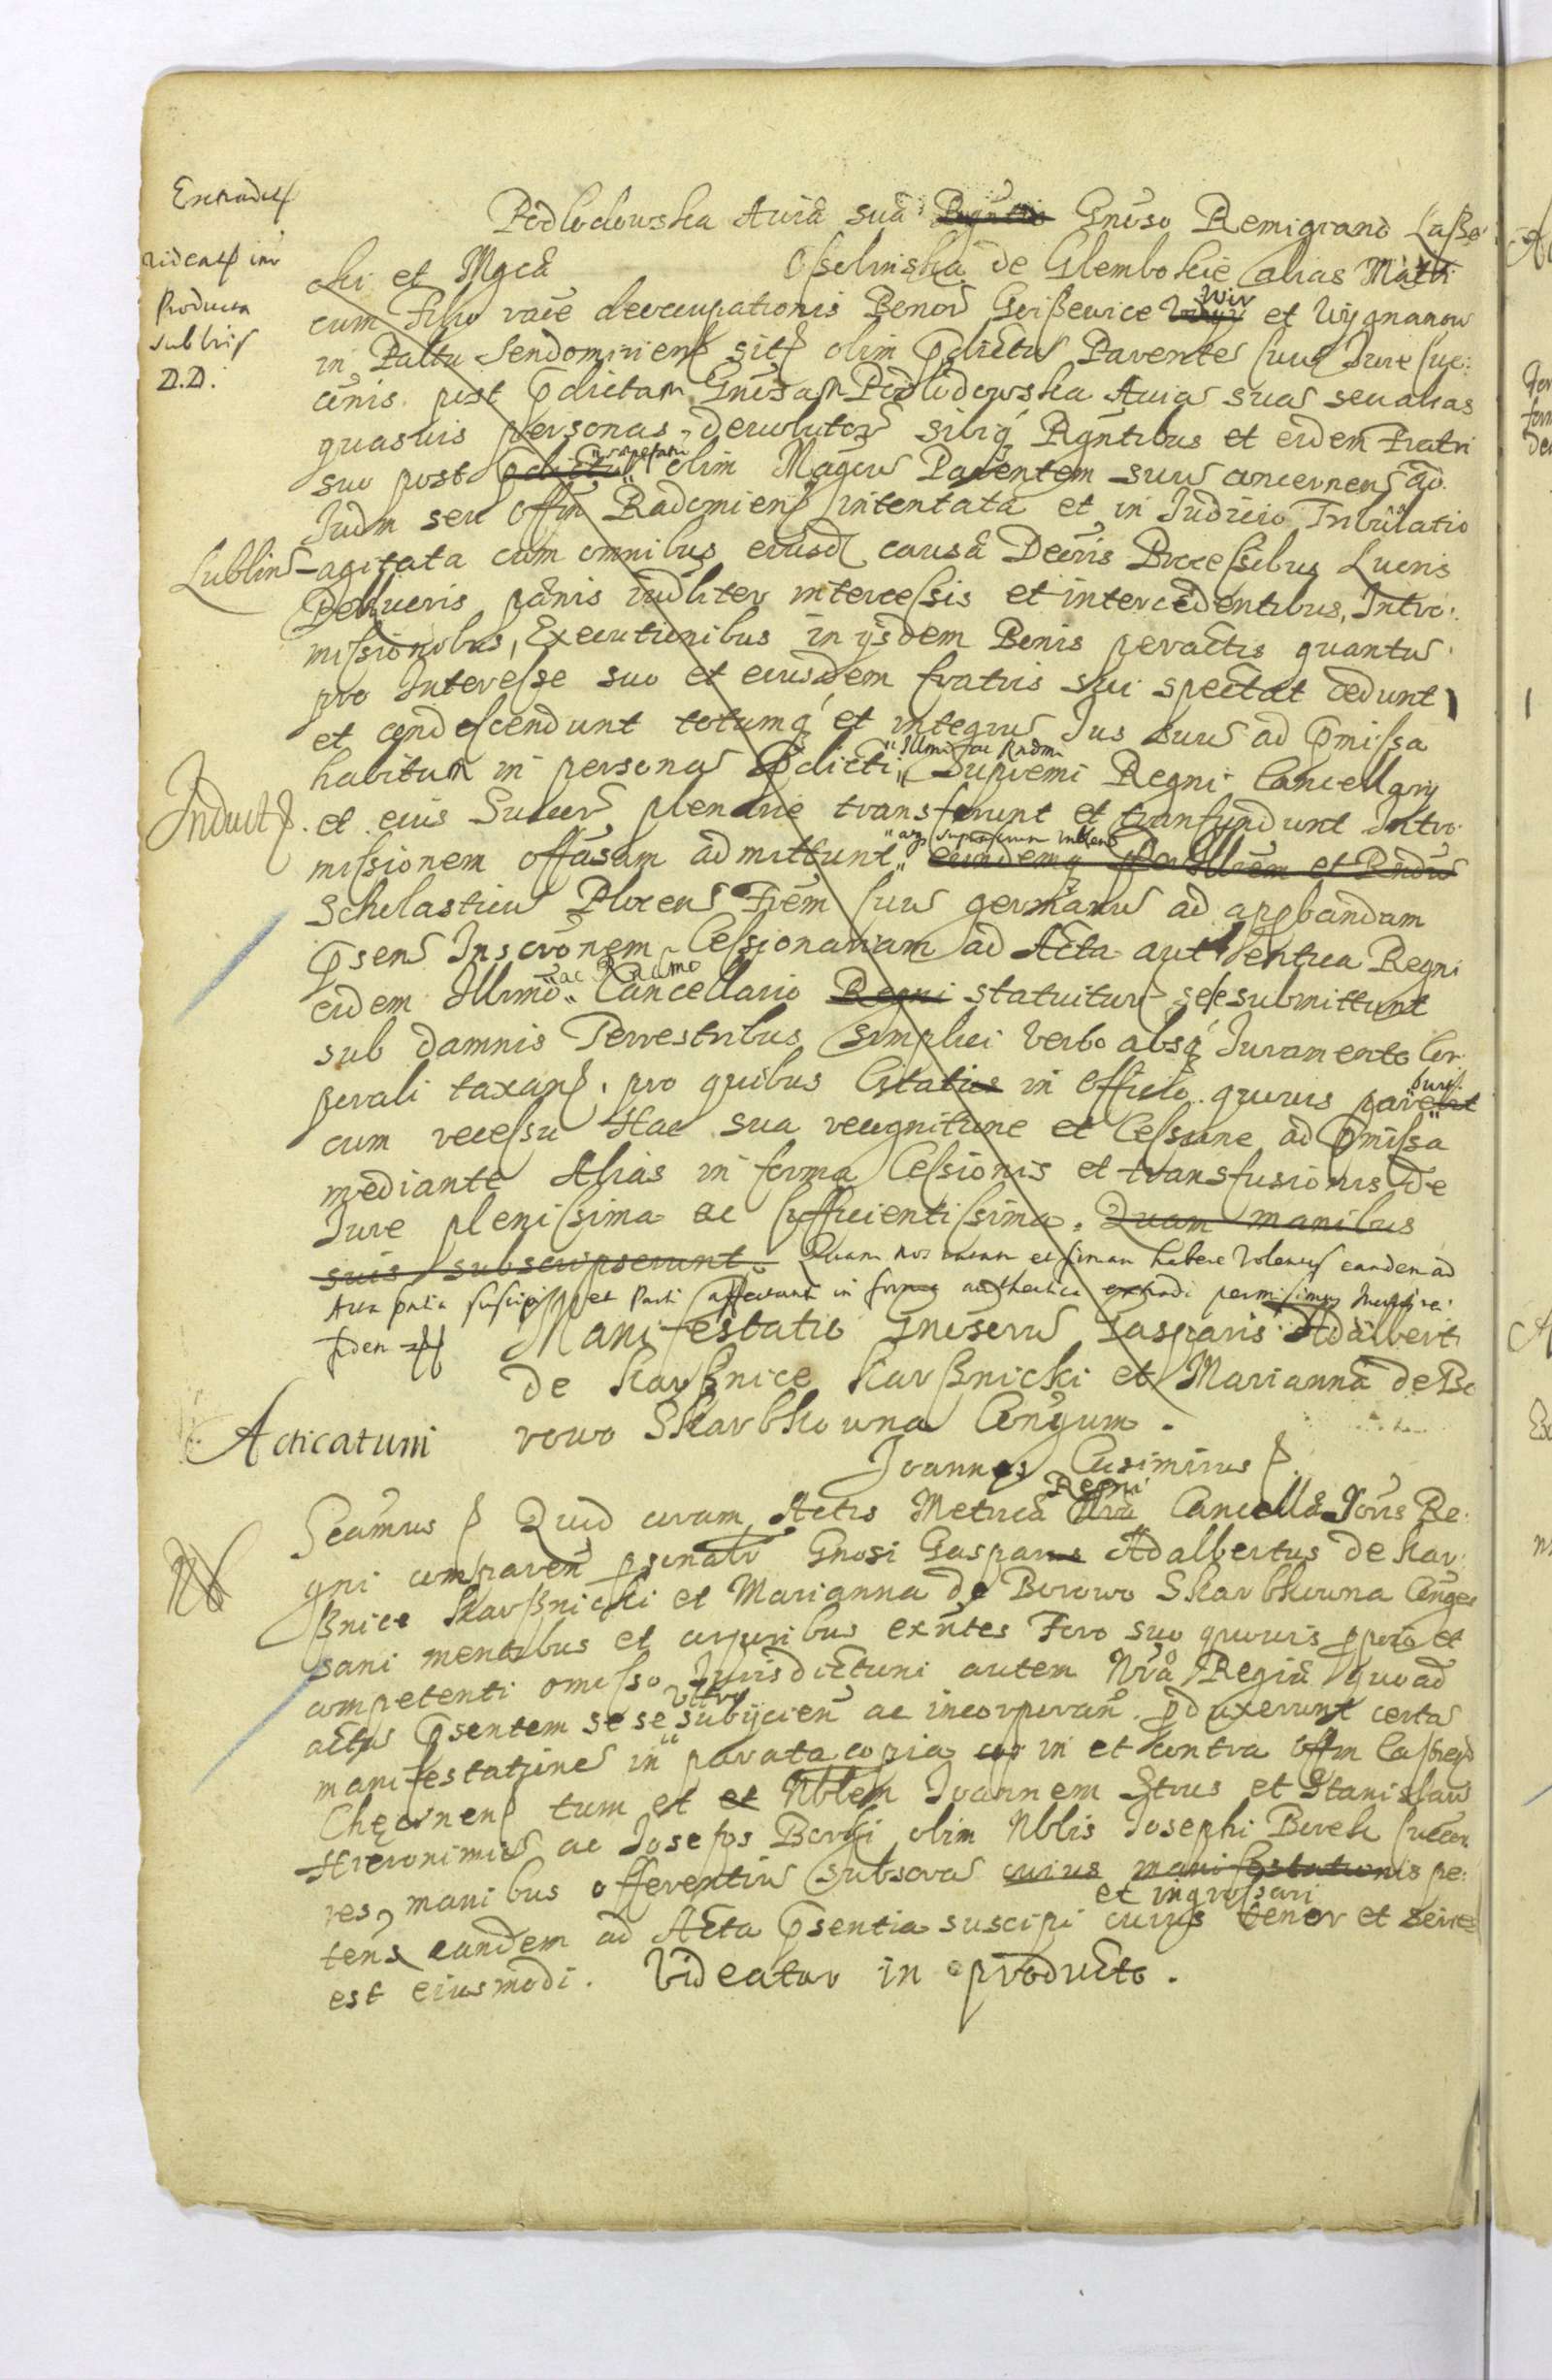 Extradit
Videatur in
Producta
sub lris
D.D.
Podlodowska Avia sua Gnoso Remigiano Laßo
cki et Mgca Osselinska de Glembokie alias Matri
cum Filio raōe deoccupationis Bonor Geißewice et Wygnanow
in Pallu Sendomirien sit olim Pdictus Parentes suus Jure suc:
cōnis post Pdictam Gnosam Podlodowska Avia suas seu alias
quasvis personas, devolutor sibiq Rgntibus et eidem Fratri
suo post olim Magcum Parentem suum concernen ad
Judm seu offm Radomien intentata et in Judicio Tribulatio
Lublin agitata cum omnibus eiusd causa Decris Processibus Lucris
Pellucris pænis iudliter intercessis et intercedentibus, Intro:
missionibus, Executionibus in ijsdem Bonis peractis quantu
pro Interesse suo et eiusdem fratris sui spectat cedunt
et condescendunt totumq et integrum Jus suum ad Pmissa
"Illmi ac Rndmi
habitum in personam Pdicti Supremi Regni Cancellarij
Induct
et eius Succr plenarie transferunt et transfundunt Intro
missionem offosam admittunt eiundemq Illrem et Rndum
Scholasticum Plocen Frem suum germanum ad approbandam
Psen Inscronem Cessionariam ad Acta authentica Regni
ac Rndmo
eidem Illrmo Cancellario Regni statuitur sese submittunt
sub damnis Terrestribus simplici verbo absq Juramento Cor
porali taxan. pro quibus Citatus in officio quovis parebit
cum recessu Hac sua recognitione et Cessione ad Pmissa
mediante Alias in forma Cessionis et transfusionis de
Jure plenissima ac sufficientissima. Quam manibus
suis subscripserunt. Quam nos ratam et firmam habere volentes eandem ad
Acta pntia suscipi et Parti affectanti in forma authentica extradi permisimus In cuius rei
fidem
Manifestatio Gnosorum Gasparis Adalberti
de Karßnice Karßnicki et Marianna de Bo
Acticatum
rowo Skarbkowna Conjugum.
Joannes Casimirus
Regni
Seamus Quod coram Actis Metrica Nra Cancella Joris Re:
gni comparen psonalr Gnosi Gasparus Adalbertus de Kar
ßnice Karßnicki et Marianna de Borowo Skarbkowna Conges
sani mentibus et corporibus exntes Foro suo quovis pprio et
competenti omisso Jurisdictioni autem Nra Regia quoad
actum Psentem sese subijcien ac incorporan. pduxerunt certas
manifestatione in parata copia in et contra offm Castren
Chęcinen tum et et Nblem Joannem Strus et Stanislaus
Hieronimus ac Josephos Borki olim Nblis Josephi Borek succes
res, manibus offerentium subscras cuius manifestationis pe:
et ingrossari
tens eandem ad Acta Psentia suscipi cuius tenor et series
est eiusmodi. Videatur in producto.